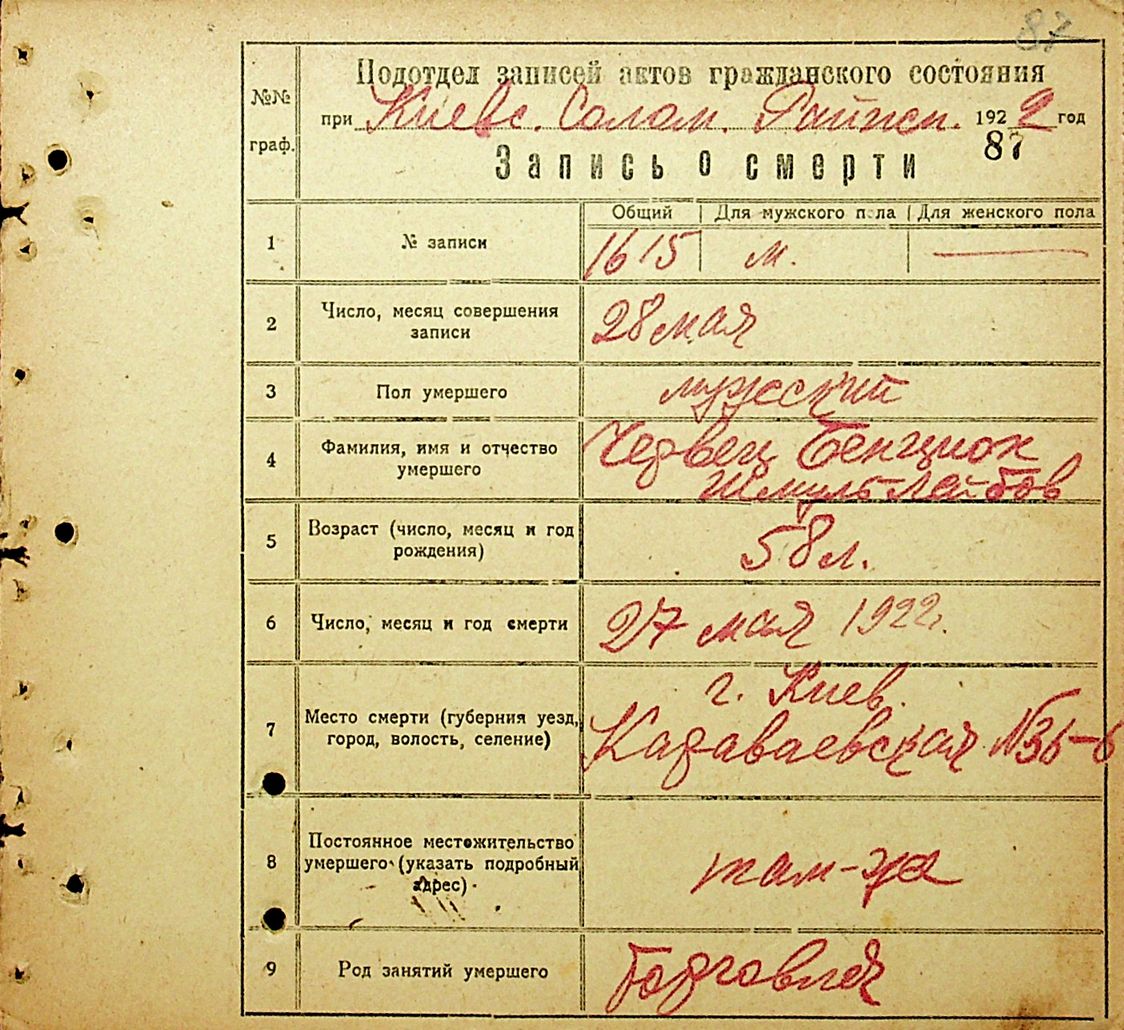 87
№№ граф.
Подотдел записей актов гражданского состояния
при Киевс. Солом. Райисп. 1922 год
87
Запись о смерти
Общий Для мужского пола Для женского пола
1 № записи 1615 м. —
2 Число, месяц совершения записи 28 мая
3 Пол умершего мужский
4 Фамилия, имя и отчество умершего Червец Бенцион
Шмуль-Лейбов
5 Возраст (число, месяц и год рождения) 58 л.
6 Число, месяц и год смерти 27 мая 1922г.
7 Место смерти (губерния уезд, город, волость, селение) г. Киев.
Караваевская №36-6
8 Постоянное местожительство умершего (указать подробный адрес) там-же
9 Род занятий умершего Торговля